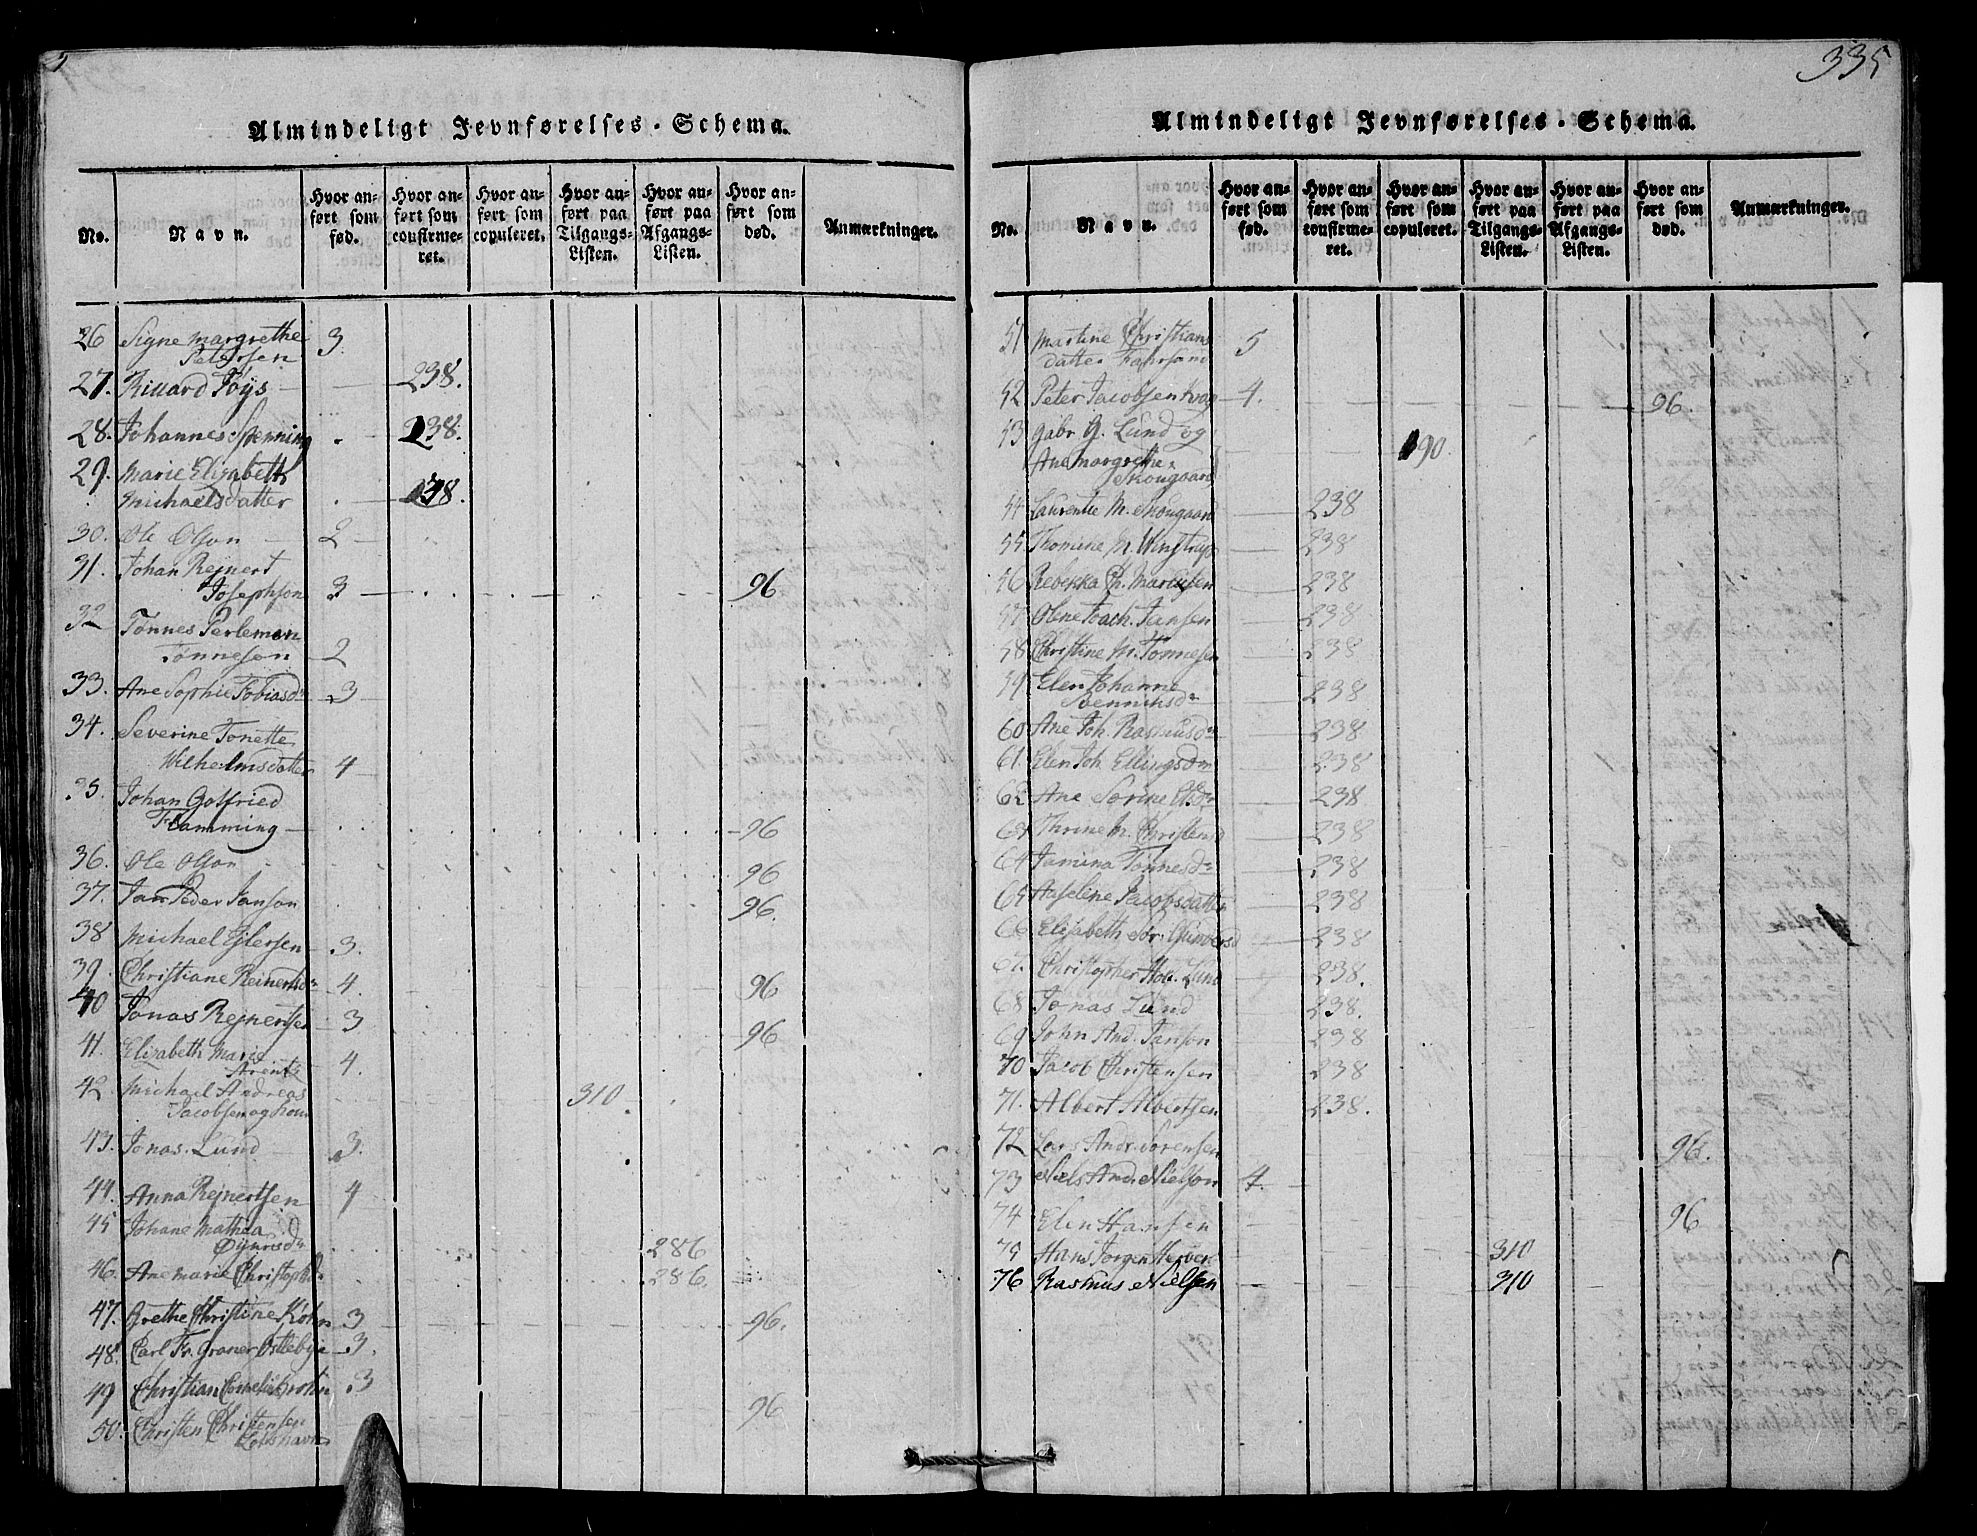 335
Almindeligt Jevnførelses-Schema.
No.
Navn.
Hvor anført som fød.
Hvor anført som confirmeret.
Hvor anført som copuleret.
Hvor anført paa Tilgangs-Listen.
Hvor anført paa Afgangs-Listen.
Hvor anført som død.
Anmærkninger.
26 Signe Margrethe
Petersen 3.
27. Rikard Föÿs 238.
28. Johannes Spenning 238.
29. Marie Elizabeth
Michaelsdatter 238.
30. Ole Olson 2
31. Johan Rejnert
Josephson 3 96
32 Tønnes Perleman
Tønnesen 2
33. Ane Sophie Tobiasd. 3
34. Severine Tonette
Wilhelmsdatter 4
35. Johan Gotfried
Flamming 96
36. Ole Olson 96
37. Jan Peder Janson 96.
38 Michael Ejlersen 3.
39. Christiane Reinertsd. 4. 96
40 Jonas Rejnertsen 3 96
41. Elizabeth Marie
Arents 4.
42 Michael Andreas
Jacobsen og Kone 310.
43. Jonas Lund 3.
44. Anna Rejnertsen 4
45 Johane Mathea
286
46. Ane Marie Christophd. 286.
47. Grethe Christine Köhn 3 96.
48. Carl Fr. Graner Ostebye 3.
49 Christian Cornelius 3
50. Christen Christensen
Loshavn 96
Almindeligt Jevnførelses-Schema.
No.
Navn.
Hvor anført som fød.
Hvor anført som confirmeret.
Hvor anført som copuleret.
Hvor anført paa Tilgangs-Listen.
Hvor anført paa Afgangs-Listen.
Hvor anført som død.
Anmærkninger.
51 Martine Christians
datter Fahrsund 5
52 Peter Jacobsen 4. 96.
53 Gabr. G. Lund og
Ane Margrethe
Skougaard 190.
54 Laurentie M. Skougaard 238
55. Thomine M. Winstrup 238
56 Rebekka Ch. Marcusen 238
57 Olene Joach. Jansen 238
58 Christine M. Tønnesen 238
59 Elen Johanne
238
60 Ane Joh. Rasmusd. 238
61. Elen Joh. Ellingsd. 238
62 Ane Sorine 238
63 Thrine M. Christensd 238
64 Jamina Tønnesd. 238
65 Aaseline Jacobsdatter 238
66 Elizabeth Sor. Gunversd 238
67. Christopher Lund 238.
68 Jonas Lund 238.
69 John And. Janson 238
70 Jacob Christensen 238
71. Albert Albertsen 238.
72 Lars Andr. Sørensen 96.
73 Niels And. Nielson 4.
74 Elen Hansen 96
75 Hans Jørgen 310
76 Rasmus Nielsen 310